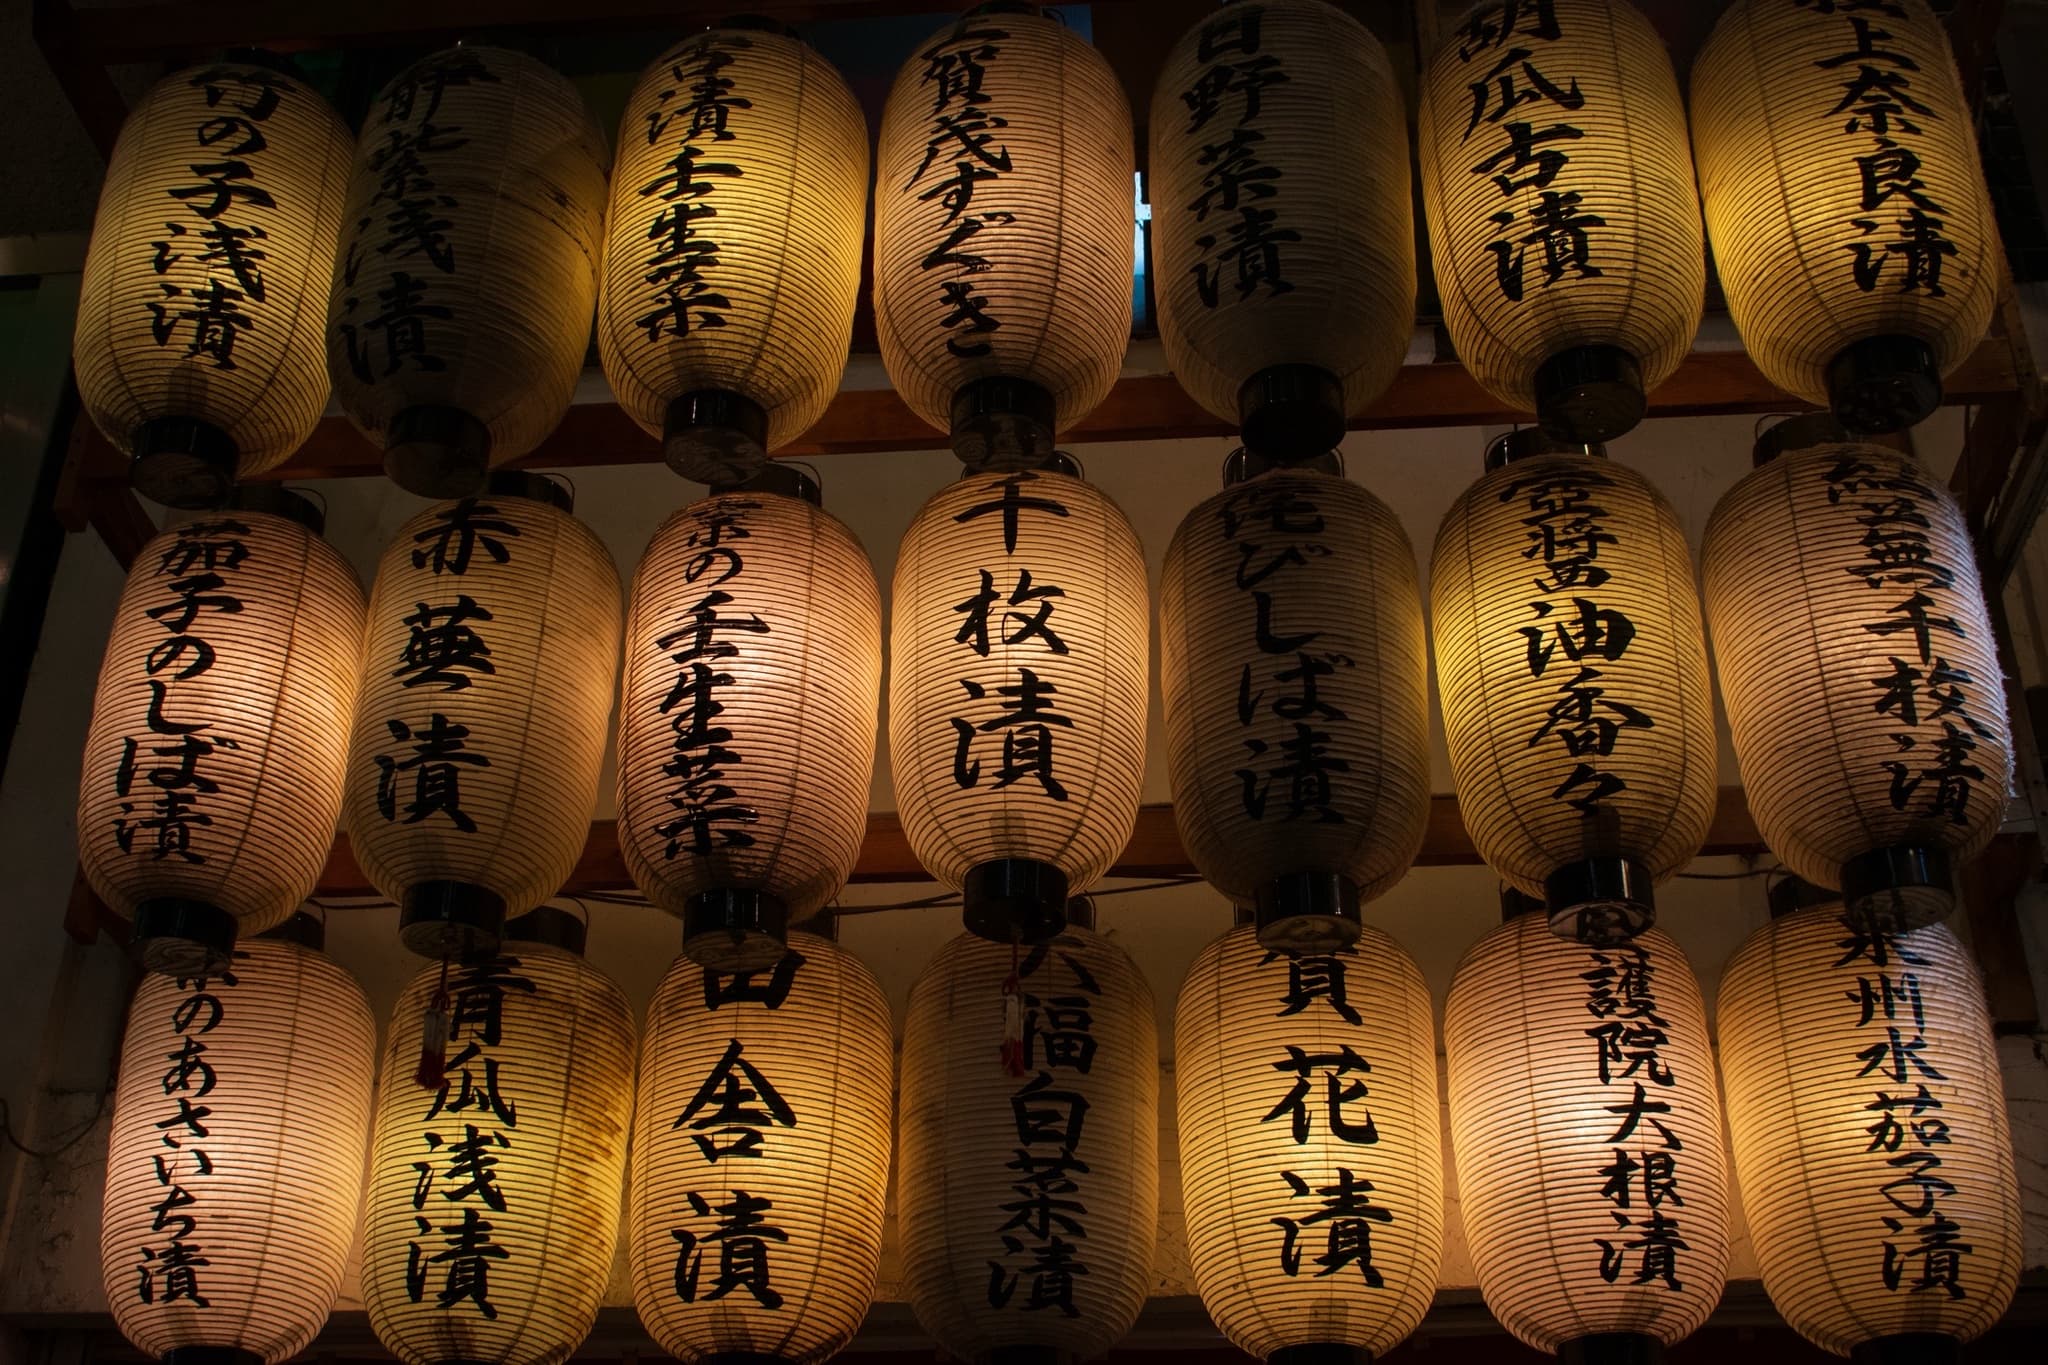 竹の子浅漬
胡紫浅漬
古漬壬生菜
上賀茂すぐき
日野菜漬
胡瓜古漬
極上奈良漬
茄子のしば漬
赤蕪漬
京の壬生菜
千枚漬
詫びしば漬
壺醤油香々
紅蕪千枚漬
京のあさいち漬
青瓜浅漬
田舎漬
大福白菜漬
賀花漬
護院大根漬
泉州水茄子漬